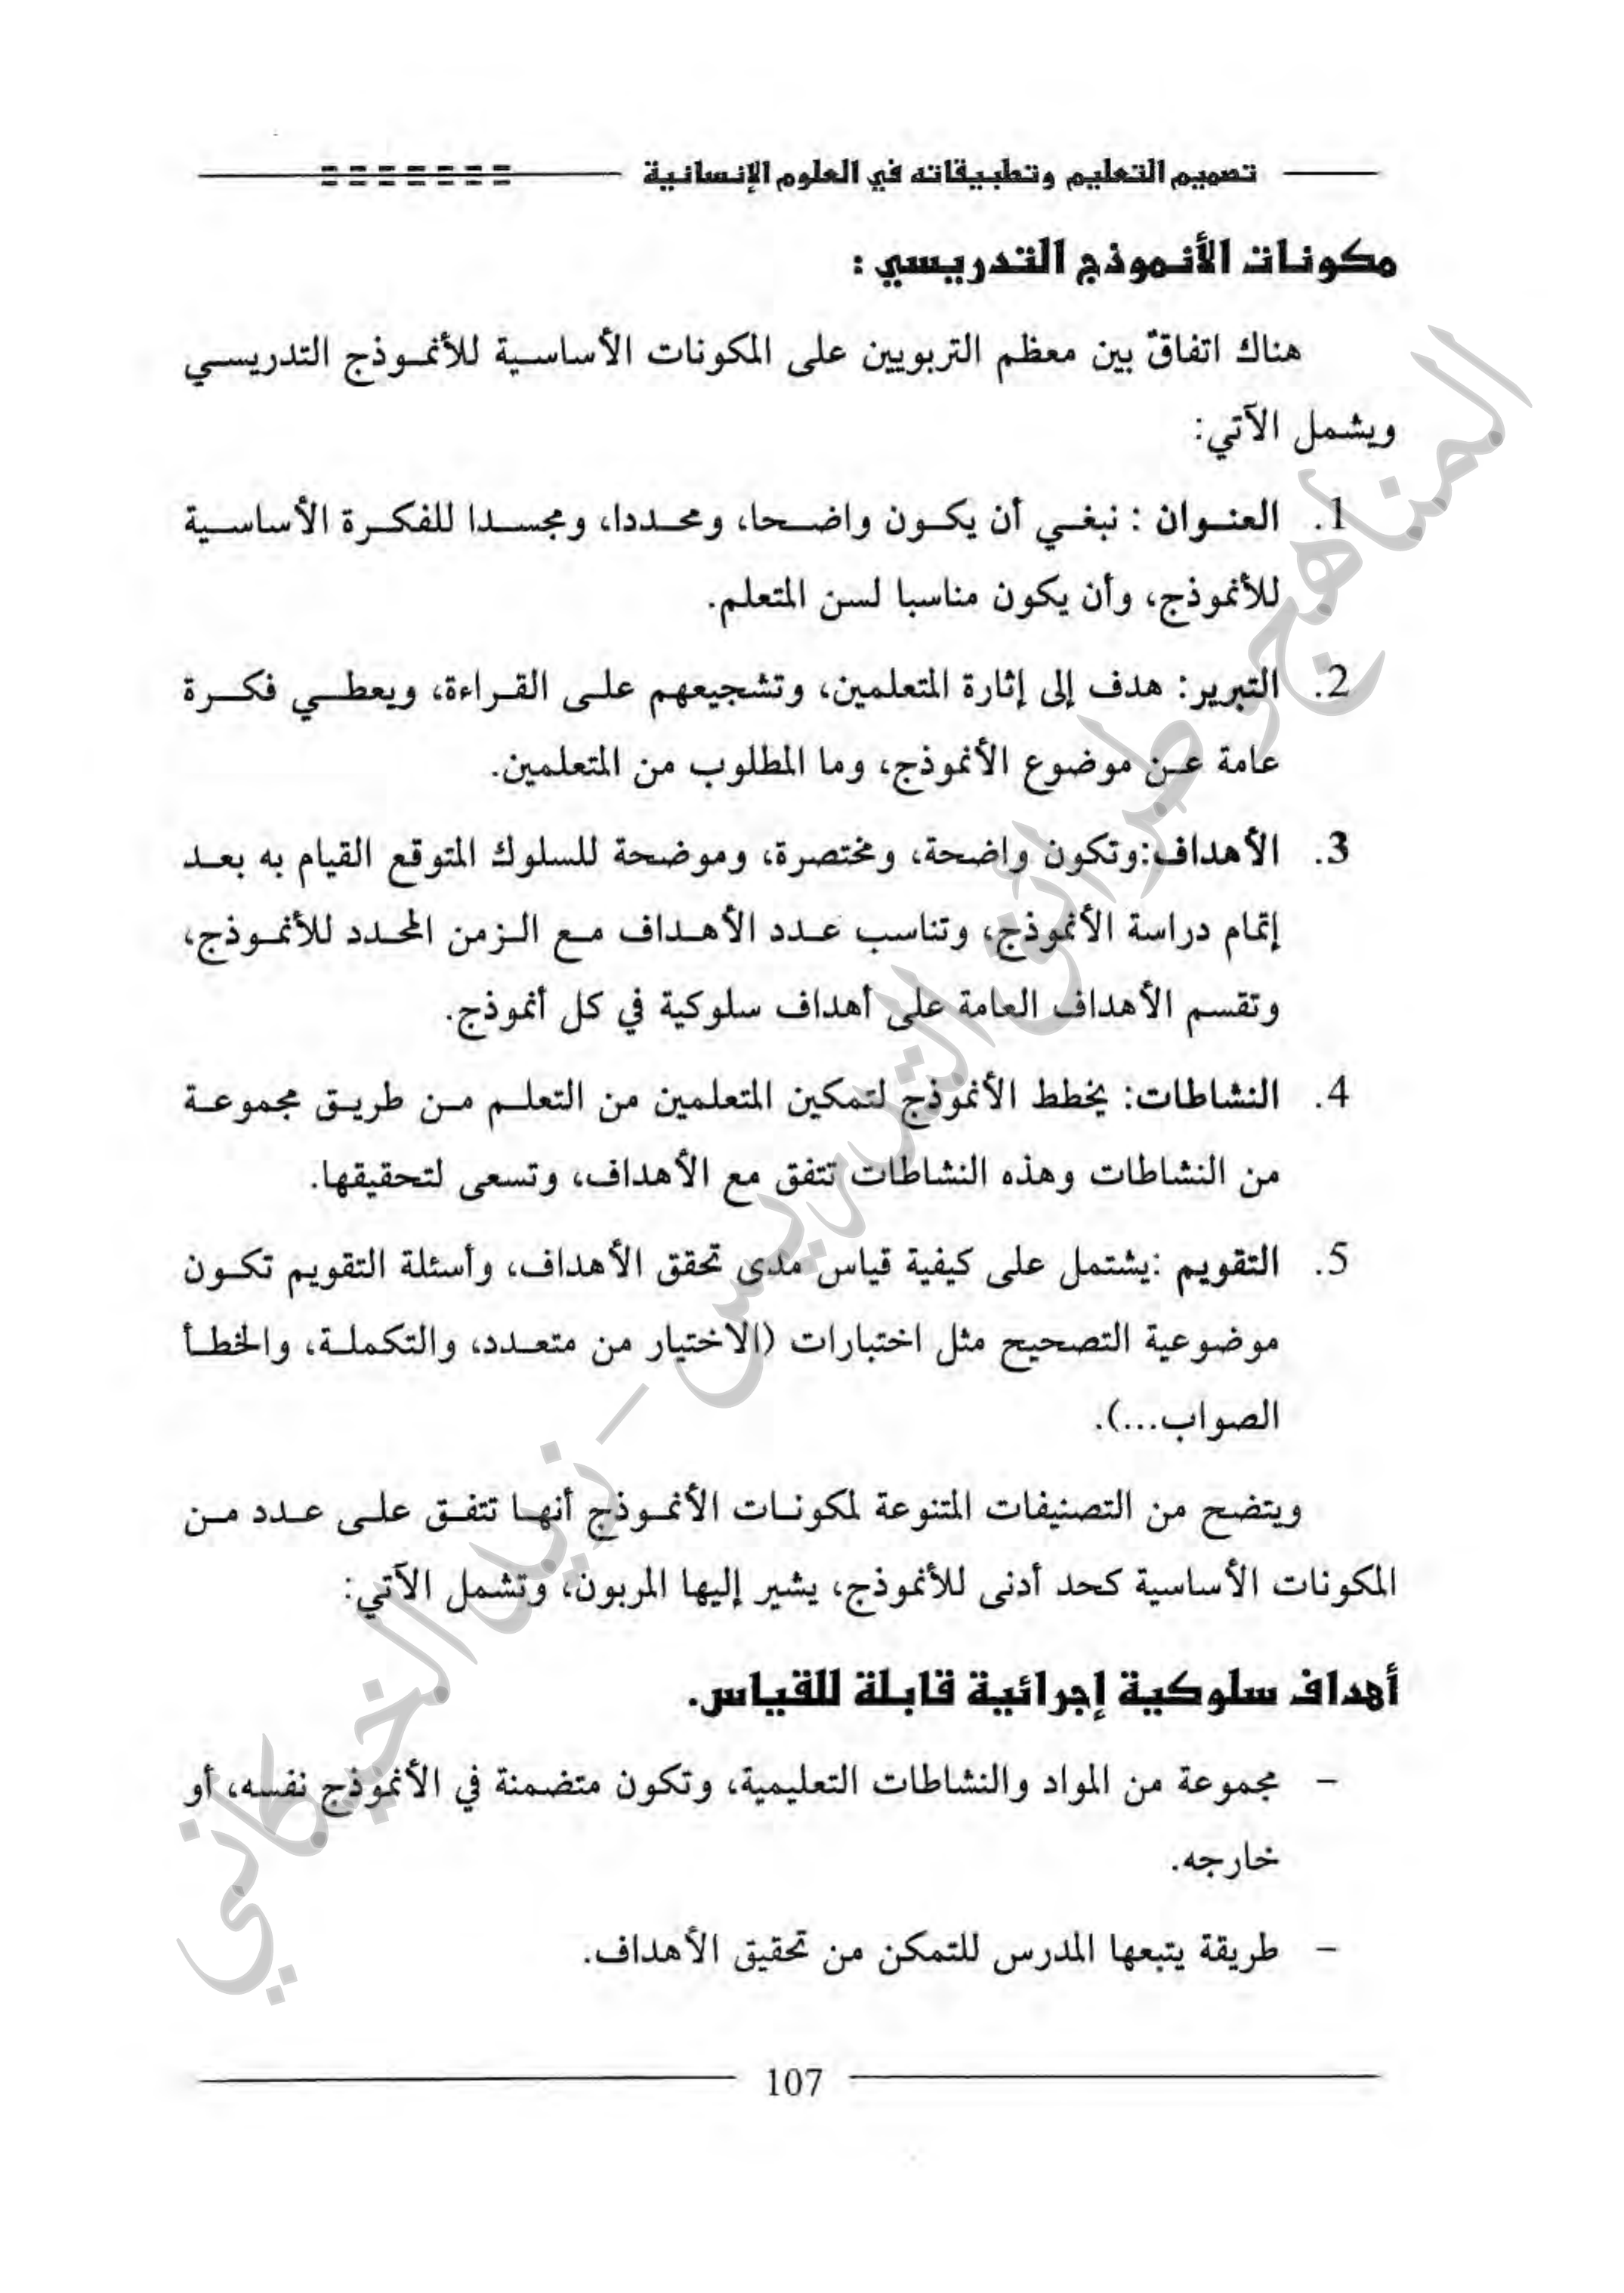 تصميم التعليم وتطبيقاته في العلوم الإنسانية
مكونات الأنموذج التدريسي :
هناك اتفاقٌ بين معظم التربويين على المكونات الأساسية للأنموذج التدريسي
ويشمل الآتي:
1. العنوان : نبغي أن يكون واضحا، ومحددا، ومجسدا للفكرة الأساسية
للأنموذج، وأن يكون مناسبا لسن المتعلم.
2. التبرير: هدف إلى إثارة المتعلمين، وتشجيعهم على القراءة، ويعطي فكرة
عامة عن موضوع الأنموذج، وما المطلوب من المتعلمين.
3. الأهداف:وتكون واضحة، ومختصرة، وموضحة للسلوك المتوقع القيام به بعد
إتمام دراسة الأنموذج، وتناسب عدد الأهداف مع الزمن المحدد للأنموذج،
وتقسم الأهداف العامة على أهداف سلوكية في كل أنموذج.
4. النشاطات: يخطط الأنموذج لتمكين المتعلمين من التعلم من طريق مجموعة
من النشاطات وهذه النشاطات تتفق مع الأهداف، وتسعى لتحقيقها.
5. التقويم :يشتمل على كيفية قياس مدى تحقق الأهداف، وأسئلة التقويم تكون
موضوعية التصحيح مثل اختبارات (الاختيار من متعدد، والتكملة، والخطأ
الصواب...).
ويتضح من التصنيفات المتنوعة لمكونات الأنموذج أنها تتفق على عدد من
المكونات الأساسية كحد أدنى للأنموذج، يشير إليها المربون، وتشمل الآتي:
أهداف سلوكية إجرائية قابلة للقياس.
– مجموعة من المواد والنشاطات التعليمية، وتكون متضمنة في الأنموذج نفسه، أو
خارجه.
– طريقة يتبعها المدرس للتمكن من تحقيق الأهداف.
107
المناهج وطرائق التدريس – زيد الخيكاني